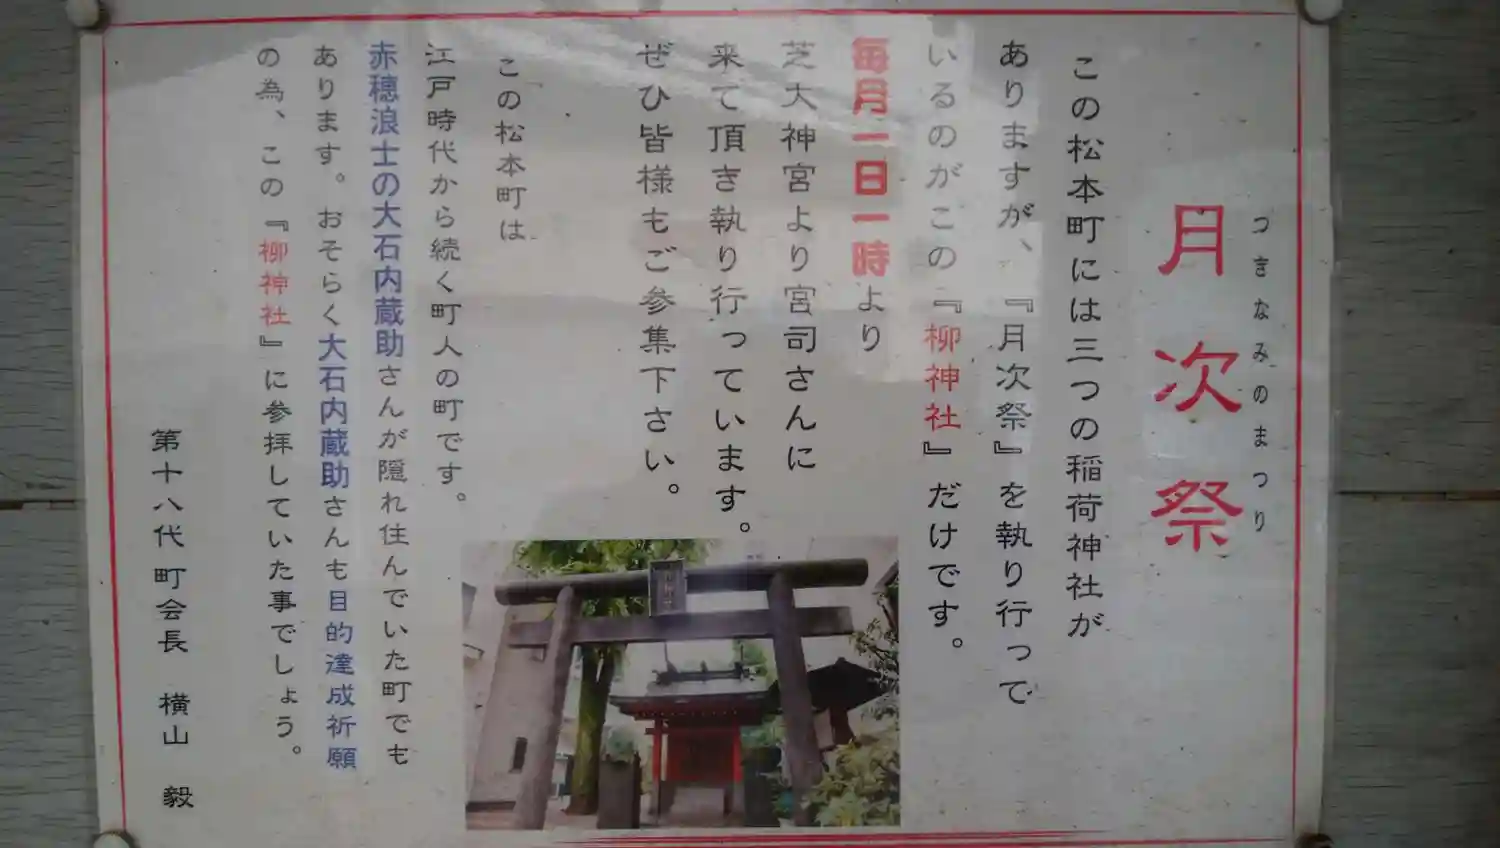 月次祭
つきなみのまつり
この松本町には三つの稲荷神社が
ありますが、『月次祭』を執り行って
いるのがこの『柳神社』だけです。
毎月一日一時より
芝大神宮より宮司さんに
来て頂き執り行っています。
ぜひ皆様もご参集下さい。
この松本町は
江戸時代から続く町人の町です。
赤穂浪士の大石内蔵助さんが隠れ住んでいた町でも
あります。おそらく大石内蔵助さんも目的達成祈願
の為、この『柳神社』に参拝していた事でしょう。
第十八代町会長 横山 毅